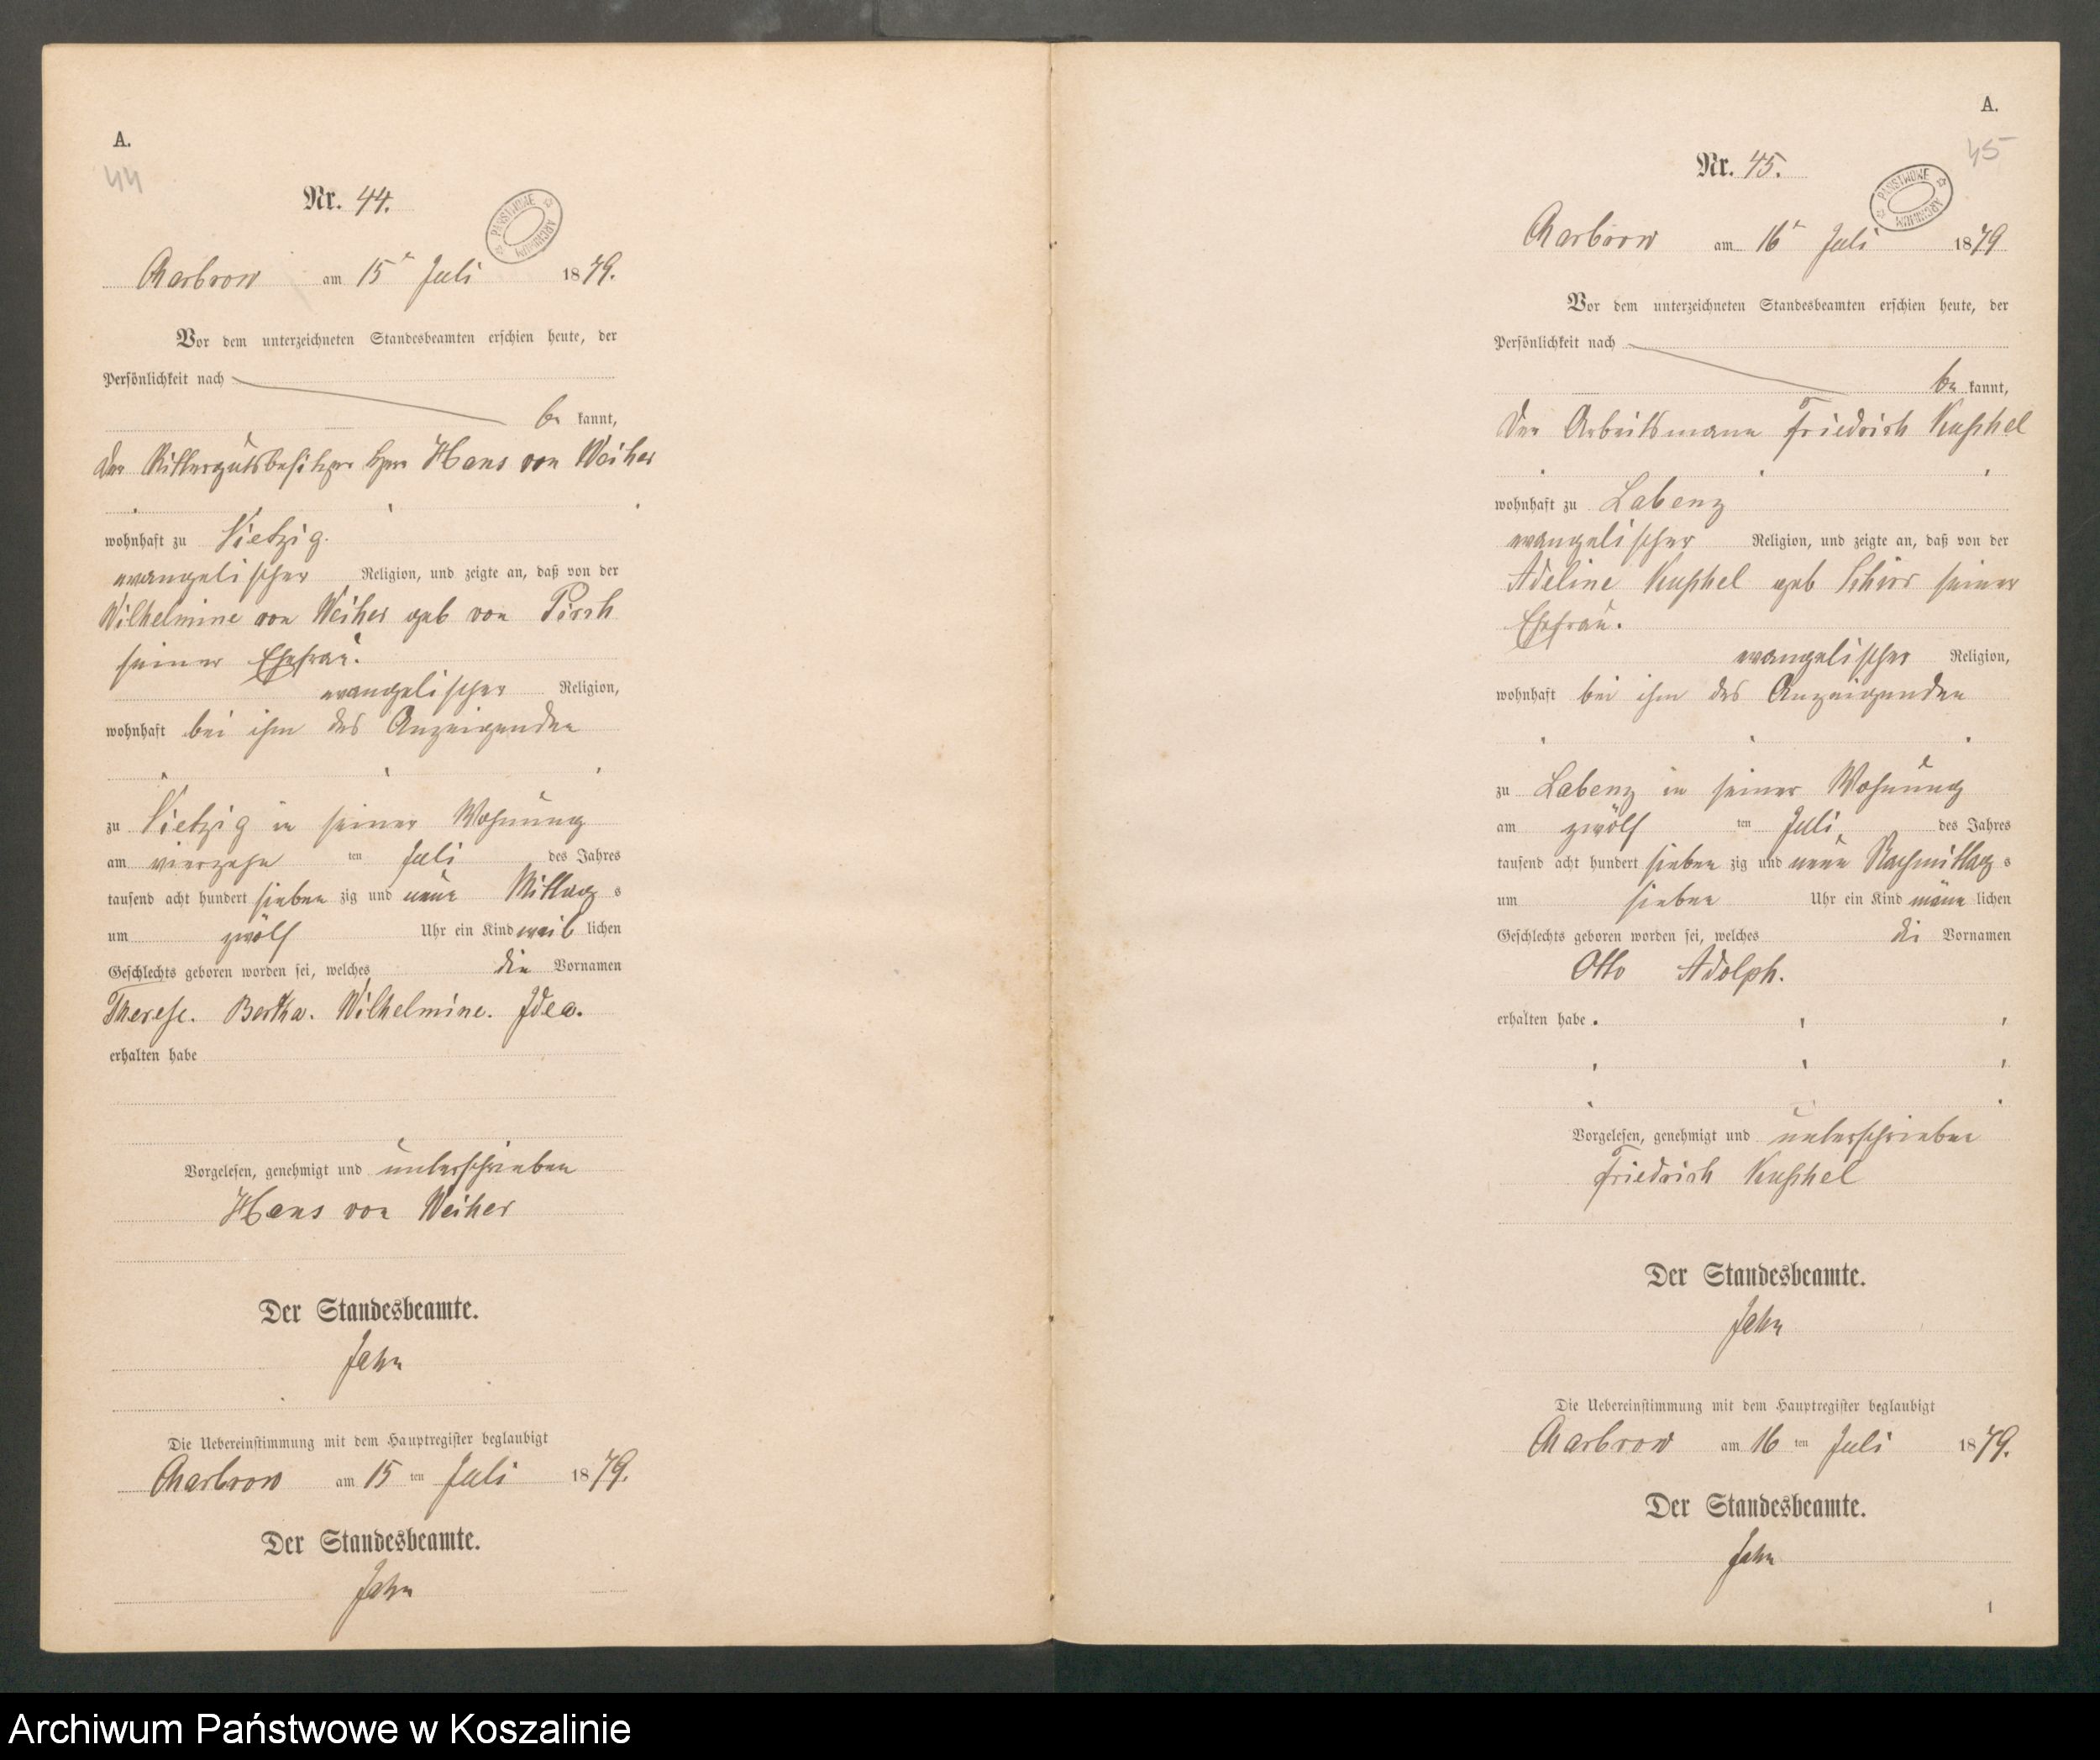 A.
44
Nr. 44.
PAŃSTWOWE ARCHIWUM
Charbrow am 15ᵗ Juli 1879.
Vor dem unterzeichneten Standesbeamten erschien heute, der
Persönlichkeit nach
be kannt,
der Rittergutsbesitzer Herr Hans von Weiher
wohnhaft zu Vietzig.
evangelischer Religion, und zeigte an, daß von der
Wilhelmine von Weiher geb von
seiner Ehefrau.
evangelischer Religion,
wohnhaft bei ihm des Anzeigenden
zu Vietzig in seiner Wohnung
am vierzehn ten Juli des Jahres
tausend acht hundert sieben zig und neun Mittag s
um zwölf Uhr ein Kind weib lichen
Geschlechts geboren worden sei, welches die Vornamen
Therese. Bertha. Wilhelmine. Idea.
erhalten habe
Vorgelesen, genehmigt und unterschrieben
Hans von Weiher
Der Standesbeamte.
Jahn
Die Uebereinstimmung mit dem Hauptregister beglaubigt
Charbrow am 15 ten Juli 1879.
Der Standesbeamte.
Jahn
A.
45
Nr. 45.
PAŃSTWOWE ARCHIWUM
Charbrow am 16ᵗ Juli 1879
Vor dem unterzeichneten Standesbeamten erschien heute, der
Persönlichkeit nach
be kannt,
der Arbeitsmann Friedrich Kuschel
wohnhaft zu Labenz
evangelischer Religion, und zeigte an, daß von der
Adeline Kuschel geb Schirr seiner
Ehefrau.
evangelischer Religion,
wohnhaft bei ihm des Anzeigenden
zu Labenz in seiner Wohnung
am zwölf ten Juli des Jahres
tausend acht hundert sieben zig und neun Nachmittag s
um sieben Uhr ein Kind männ lichen
Geschlechts geboren worden sei, welches die Vornamen
Otto Adolph.
erhalten habe.
Vorgelesen, genehmigt und unterschrieben
Friedrich Kuschel
Der Standesbeamte.
Jahn
Die Uebereinstimmung mit dem Hauptregister beglaubigt
Charbrow am 16 ten Juli 1879.
Der Standesbeamte.
Jahn
1
Archiwum Państwowe w Koszalinie